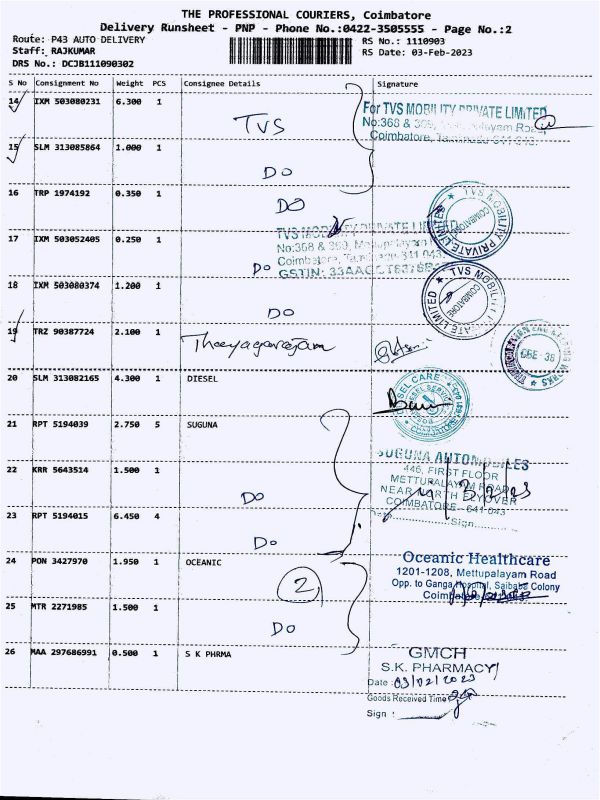 THE PROFESSIONAL COURIERS, Coimbatore
Delivery Runsheet - PNP - Phone No.:0422-3505555 - Page No.:2
Route: P43 AUTO DELIVERY
RS No.: 1110903
Staff: RAJKUMAR
RS Date: 03-Feb-2023
DRS No.: DCJB111090302
S No Consignment No Weight PCS Consignee Details Signature
14 IXM 503080231 6.300 1 TVS
For TVS MOBILITY PRIVATE LIMITED
No:368 & 369,
Coimbatore,
15 SLM 313085864 1.000 1 DO
16 TRP 1974192 0.350 1 DO
TVS MOBILITY PRIVATE LIMITED COIMBATORE
17 IXM 503052405 0.250 1 DO
TVS MOBILITY PRIVATE
No:368 & 369, Mettupalayam
Coimbatore, 641 043.
GSTIN:
18 IXM 503080374 1.200 1 DO
TVS MOBILITY PRIVATE LIMITED COIMBATORE
19 TRZ 90387724 2.100 1 Theeyagarajan
CBE-38
WORKS
20 SLM 313082165 4.300 1 DIESEL
DIESEL CARE
DIESEL SERVICE
COIMBATORE
21 RPT 5194039 2.750 5 SUGUNA
SUGUNA AUTOMOBILES
446, FIRST FLOOR
METTUPALAYAM ROAD
NEAR NORTH FLYOVER
COIMBATORE - 641 043
Date Sign
22 KRR 5643514 1.500 1 DO
23 RPT 5194015 6.450 4 DO
24 PON 3427970 1.950 1 OCEANIC
2
Oceanic Healthcare
1201-1208, Mettupalayam Road
Opp. to Ganga Hospital, Saibaba Colony
25 MTR 2271985 1.500 1 DO
26 MAA 297686991 0.500 1 S K PHRMA
GMCH
S.K. PHARMACY
Date : 03/02/2023
Goods Received Time
Sign :